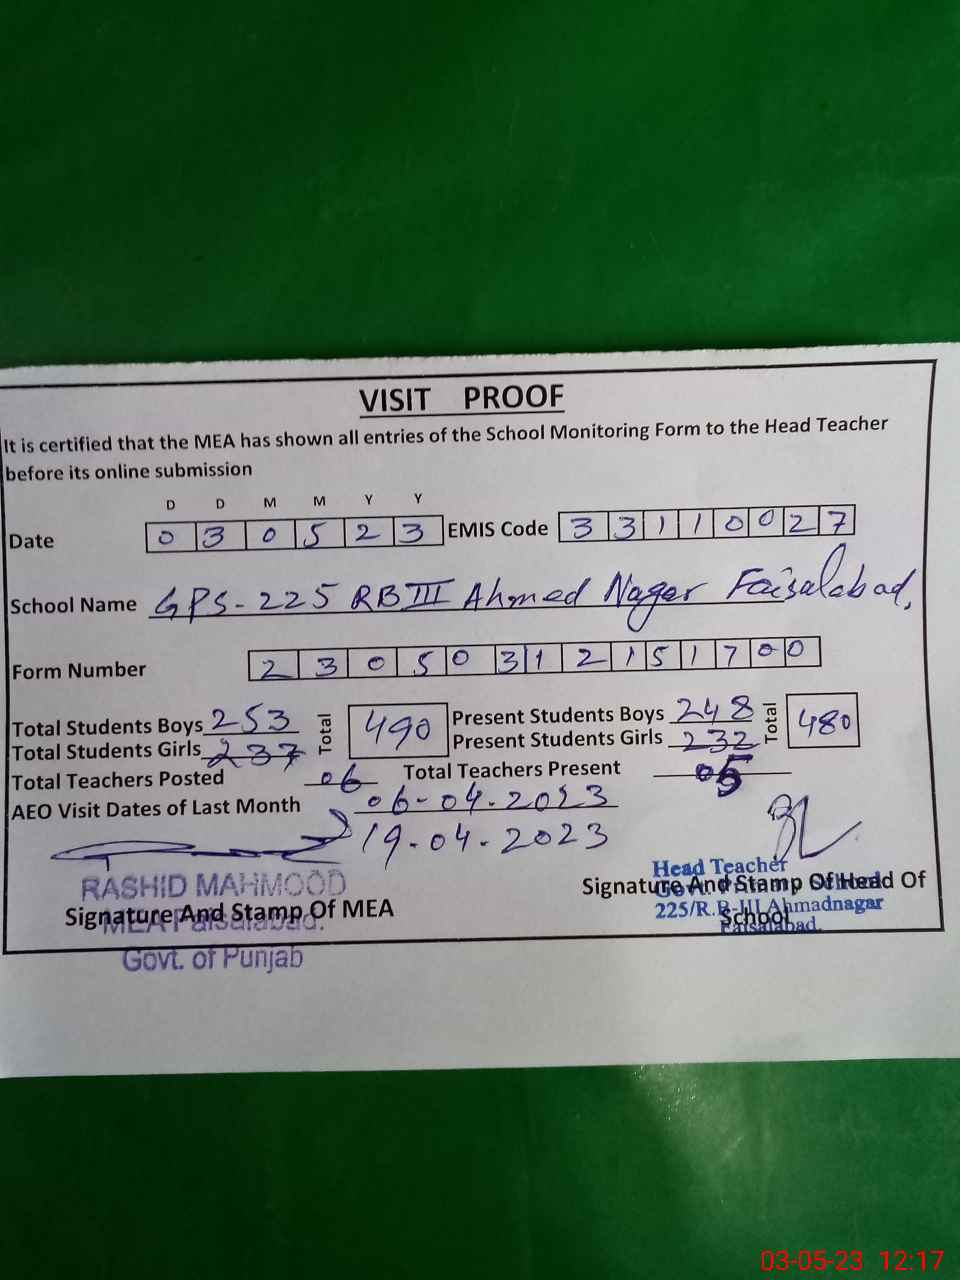 VISIT PROOF
It is certified that the MEA has shown all entries of the School Monitoring Form to the Head Teacher
before its online submission
D D M M Y Y
Date 0 3 0 5 2 3 EMIS Code 3 3 1 1 0 0 2 7
School Name GPS-225 RB III Ahmed Nagar Faisalabad,
Form Number 2 3 0 5 0 3 1 2 1 5 1 7 0 0
Total Students Boys 253 Total 490 Present Students Boys 248 Total 480
Total Students Girls 237 Present Students Girls 232
Total Teachers Posted 06 Total Teachers Present 05
AEO Visit Dates of Last Month 06-04-2023
19-04-2023
RASHID MAHMOOD
Signature And Stamp Of MEA
MEA Faisalabad.
Govt. of Punjab
Head Teacher
Signature And Stamp Of Head Of
School
225/R.B-III Ahmadnagar
Faisalabad.
03-05-23 12:17